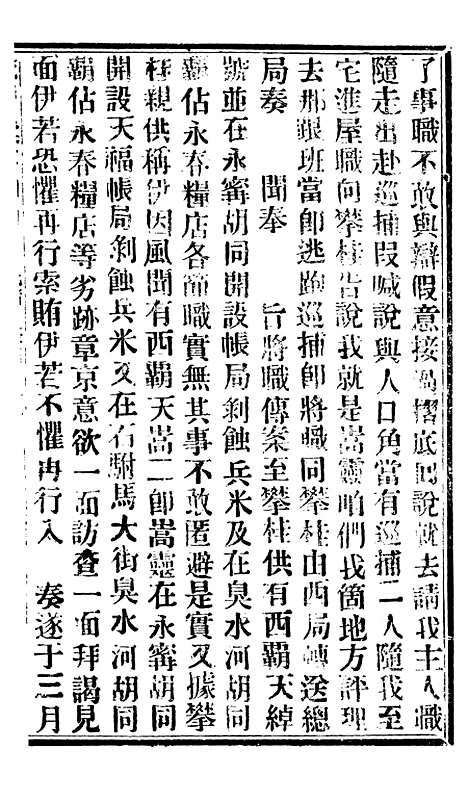 了事職不敢與辯假意接過摺底向說就去請我主人職
隨走出赴巡捕叚喊說與人口角當有巡捕二人隨我至
宅進屋職向攀桂告說我就是嵩靈咱們找箇地方評理
去那跟班當卽逃跑巡捕卽將職同攀桂由西局轉送總
局奏　聞奉　旨將職傳案至攀桂供有西霸天綽
號並在永寗胡同開設帳局剝蝕兵米及在臭水河胡同
霸佔永春糧店各節職實無其事不敢匿避是實又據攀
桂親供稱伊因風聞有西霸天嵩二卽嵩靈在永寗胡同
開設天福帳局剝蝕兵米又在石駙馬大街臭水河胡同
霸佔永春糧店等劣跡章京意欲一面訪查一面拜謁見
面伊若恐懼再行索賄伊若不懼再行入　奏遂于三月